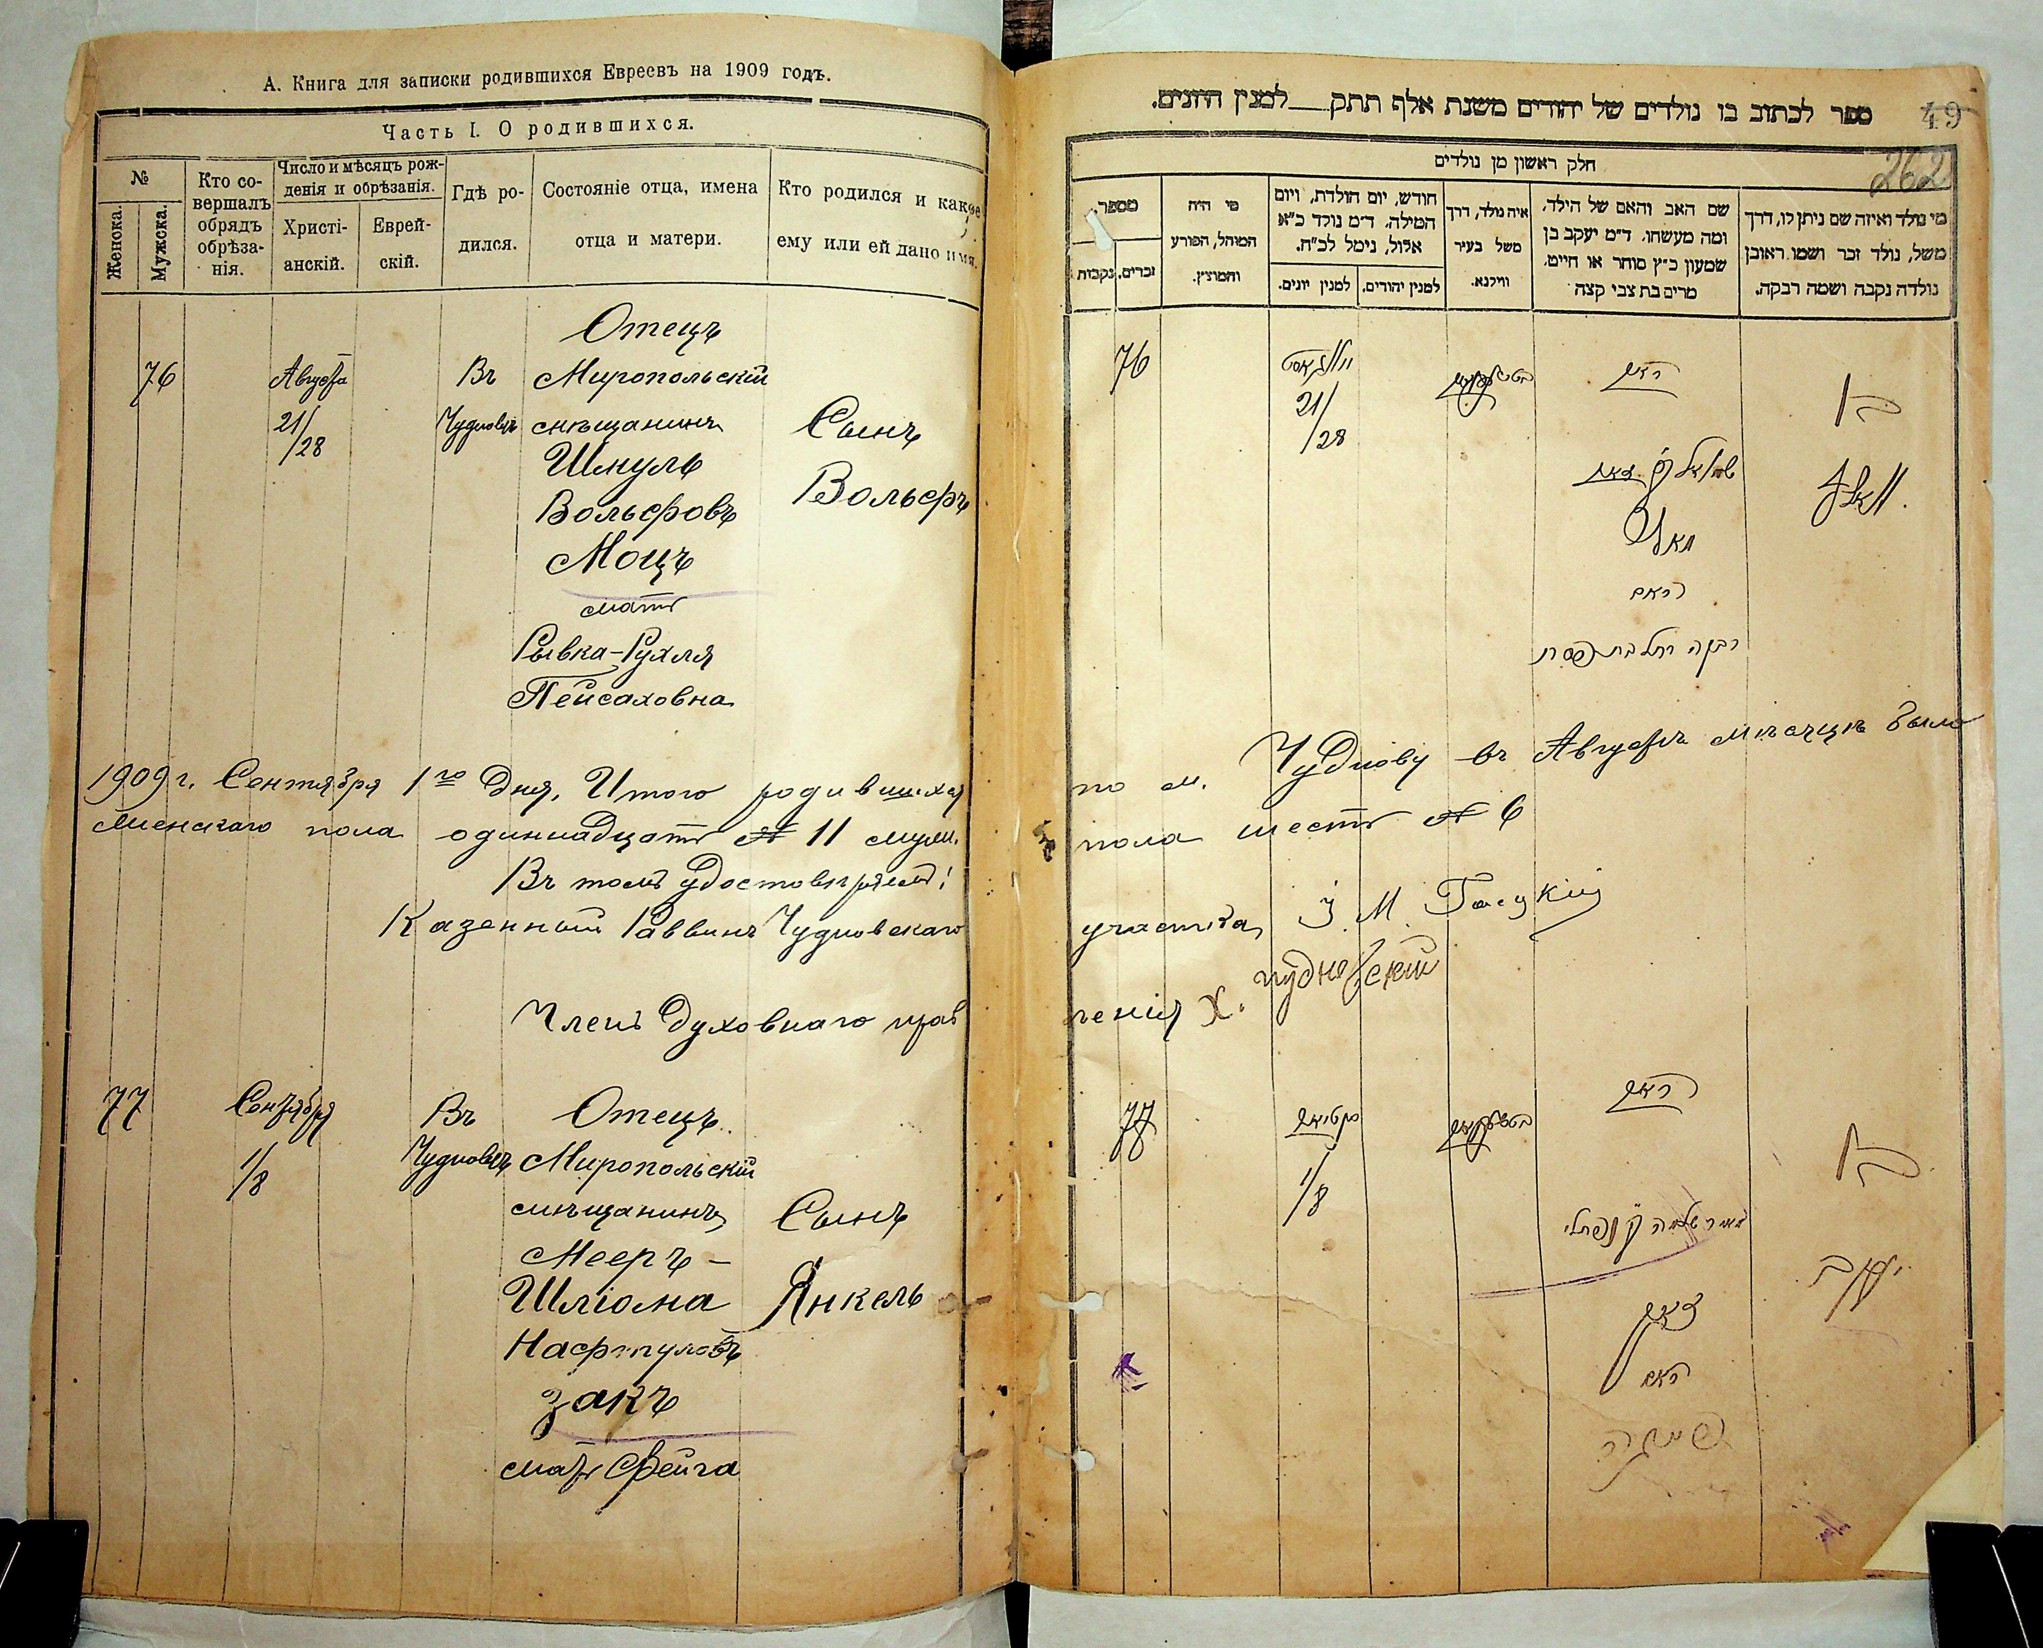 А. Книга для записки родившихся Евреевъ на 1909 годъ.
Часть I. О родившихся.
№
Женска.
Мужска.
Кто со-
вершалъ
обрядъ
обрѣза-
нія.
Число и мѣсяцъ рож-
денія и обрѣзанія.
Христі-
анскій.
Еврей-
скій.
Гдѣ ро-
дился.
Состояніе отца, имена
отца и матери.
Кто родился и какое
ему или ей дано имя.
76
Августа
21/28
Въ
Чудновѣ
Отецъ
Миропольскій
мѣщанинъ
Шмуль
Вольфовъ
Моцъ
мать
Рывка-Рухля
Пейсаховна
Сынъ
Вольфъ
1909 г. Сентября 1го дня. Итого родившихся
женскаго пола одиннадцать № 11 муж.
Въ томъ удостовѣряемъ:
Казенный Раввинъ Чудновскаго
Членъ Духовнаго прав
77
Сентября
1/8
Въ
Чудновѣ
Отецъ
Миропольскій
мѣщанинъ
Мееръ-
Шліома
Нафтуловъ
Закъ
мать Фейга
Сынъ
Янкель
ספר לכתוב בו נולדים של יהודים משנת אלף תתק למנין היונים.
49
262
חלק ראשון מן נולדים
מי נולד ואיזה שם ניתן לו, דרך
משל, נולד זכר ושמו ראובן
נולדה נקבה ושמה רבקה.
שם האב והאם של הילד,
ומה מעשהו. ד"מ יעקב בן
שמעון כ"ץ סוחר או חייט,
מרים בת צבי קצה
איה נולד, דרך
משל בעיר
ווילנא.
חודש, יום הולדת, ויום
המילה. ד"מ נולד כ"א
אלול, נימל לכ"ח.
למנין יהודים.
למנין יונים.
מי היה
המוהל, הפורע
והמוצץ.
מספר.
זכרים.
נקבות
76
21/28
האב
בן
וואלף.
האם
רבקה רחל בת פסח
по м. Чуднову въ Августѣ мѣсяцѣ было
пола шесть № 6
участка,
ленія Х. Чудновскій
77
1/8
האב
בן
יעקב
האם